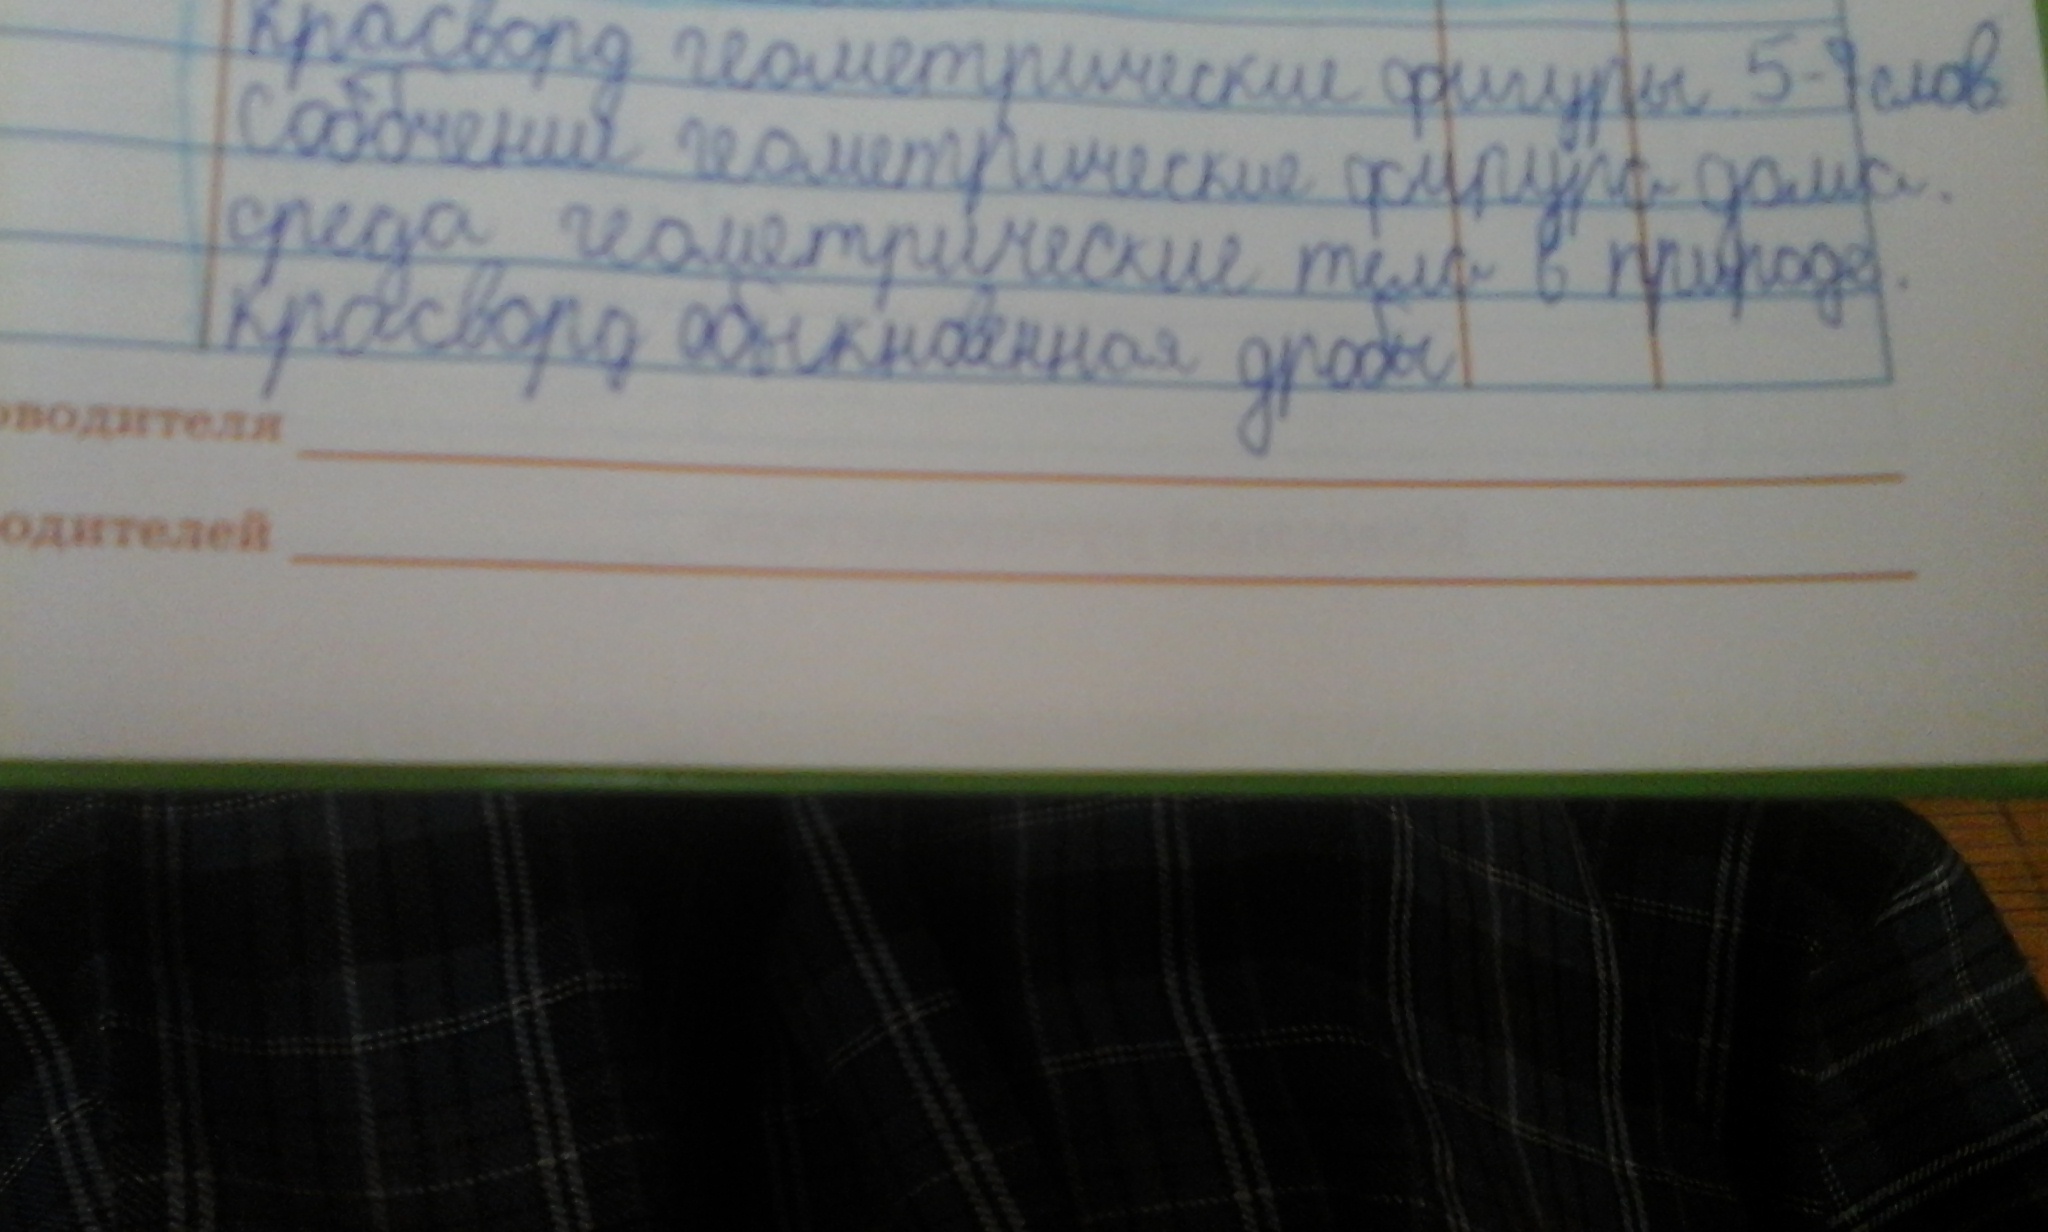 красворд геометрические фигуры 5-9 слов
Собочения геометрические фигура дома.
среда геометрические тела в природе.
красворд обыкновенная дробы
оводителя
одителей